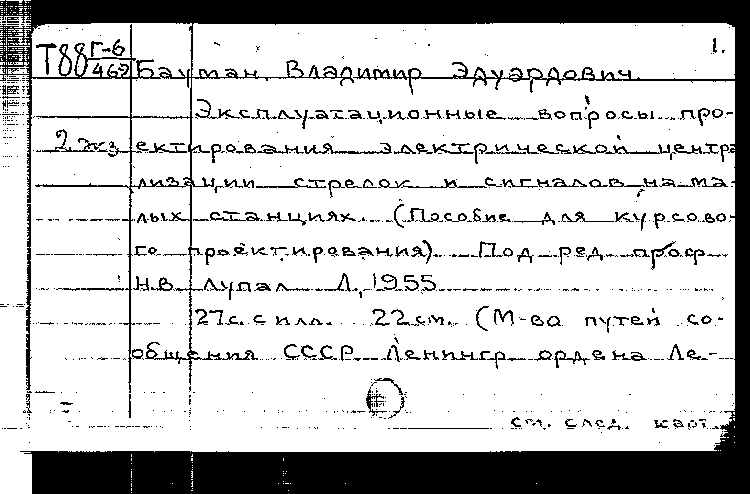 1.
Т88 Г-6
469
Бауман, Владимир Эдуардович.
Эксплуатационные вопросы про-
2 экз
ектирования электрической центра
лизации стрелок и сигналов на ма-
лых станциях. (Пособие для курсово-
го проектирования). Под ред. проф
Н.В. Лупал Л., 1955
27с. с илл. 22см. (М-во путей со-
общения СССР. Ленингр. ордена Ле-
см. след. карт.